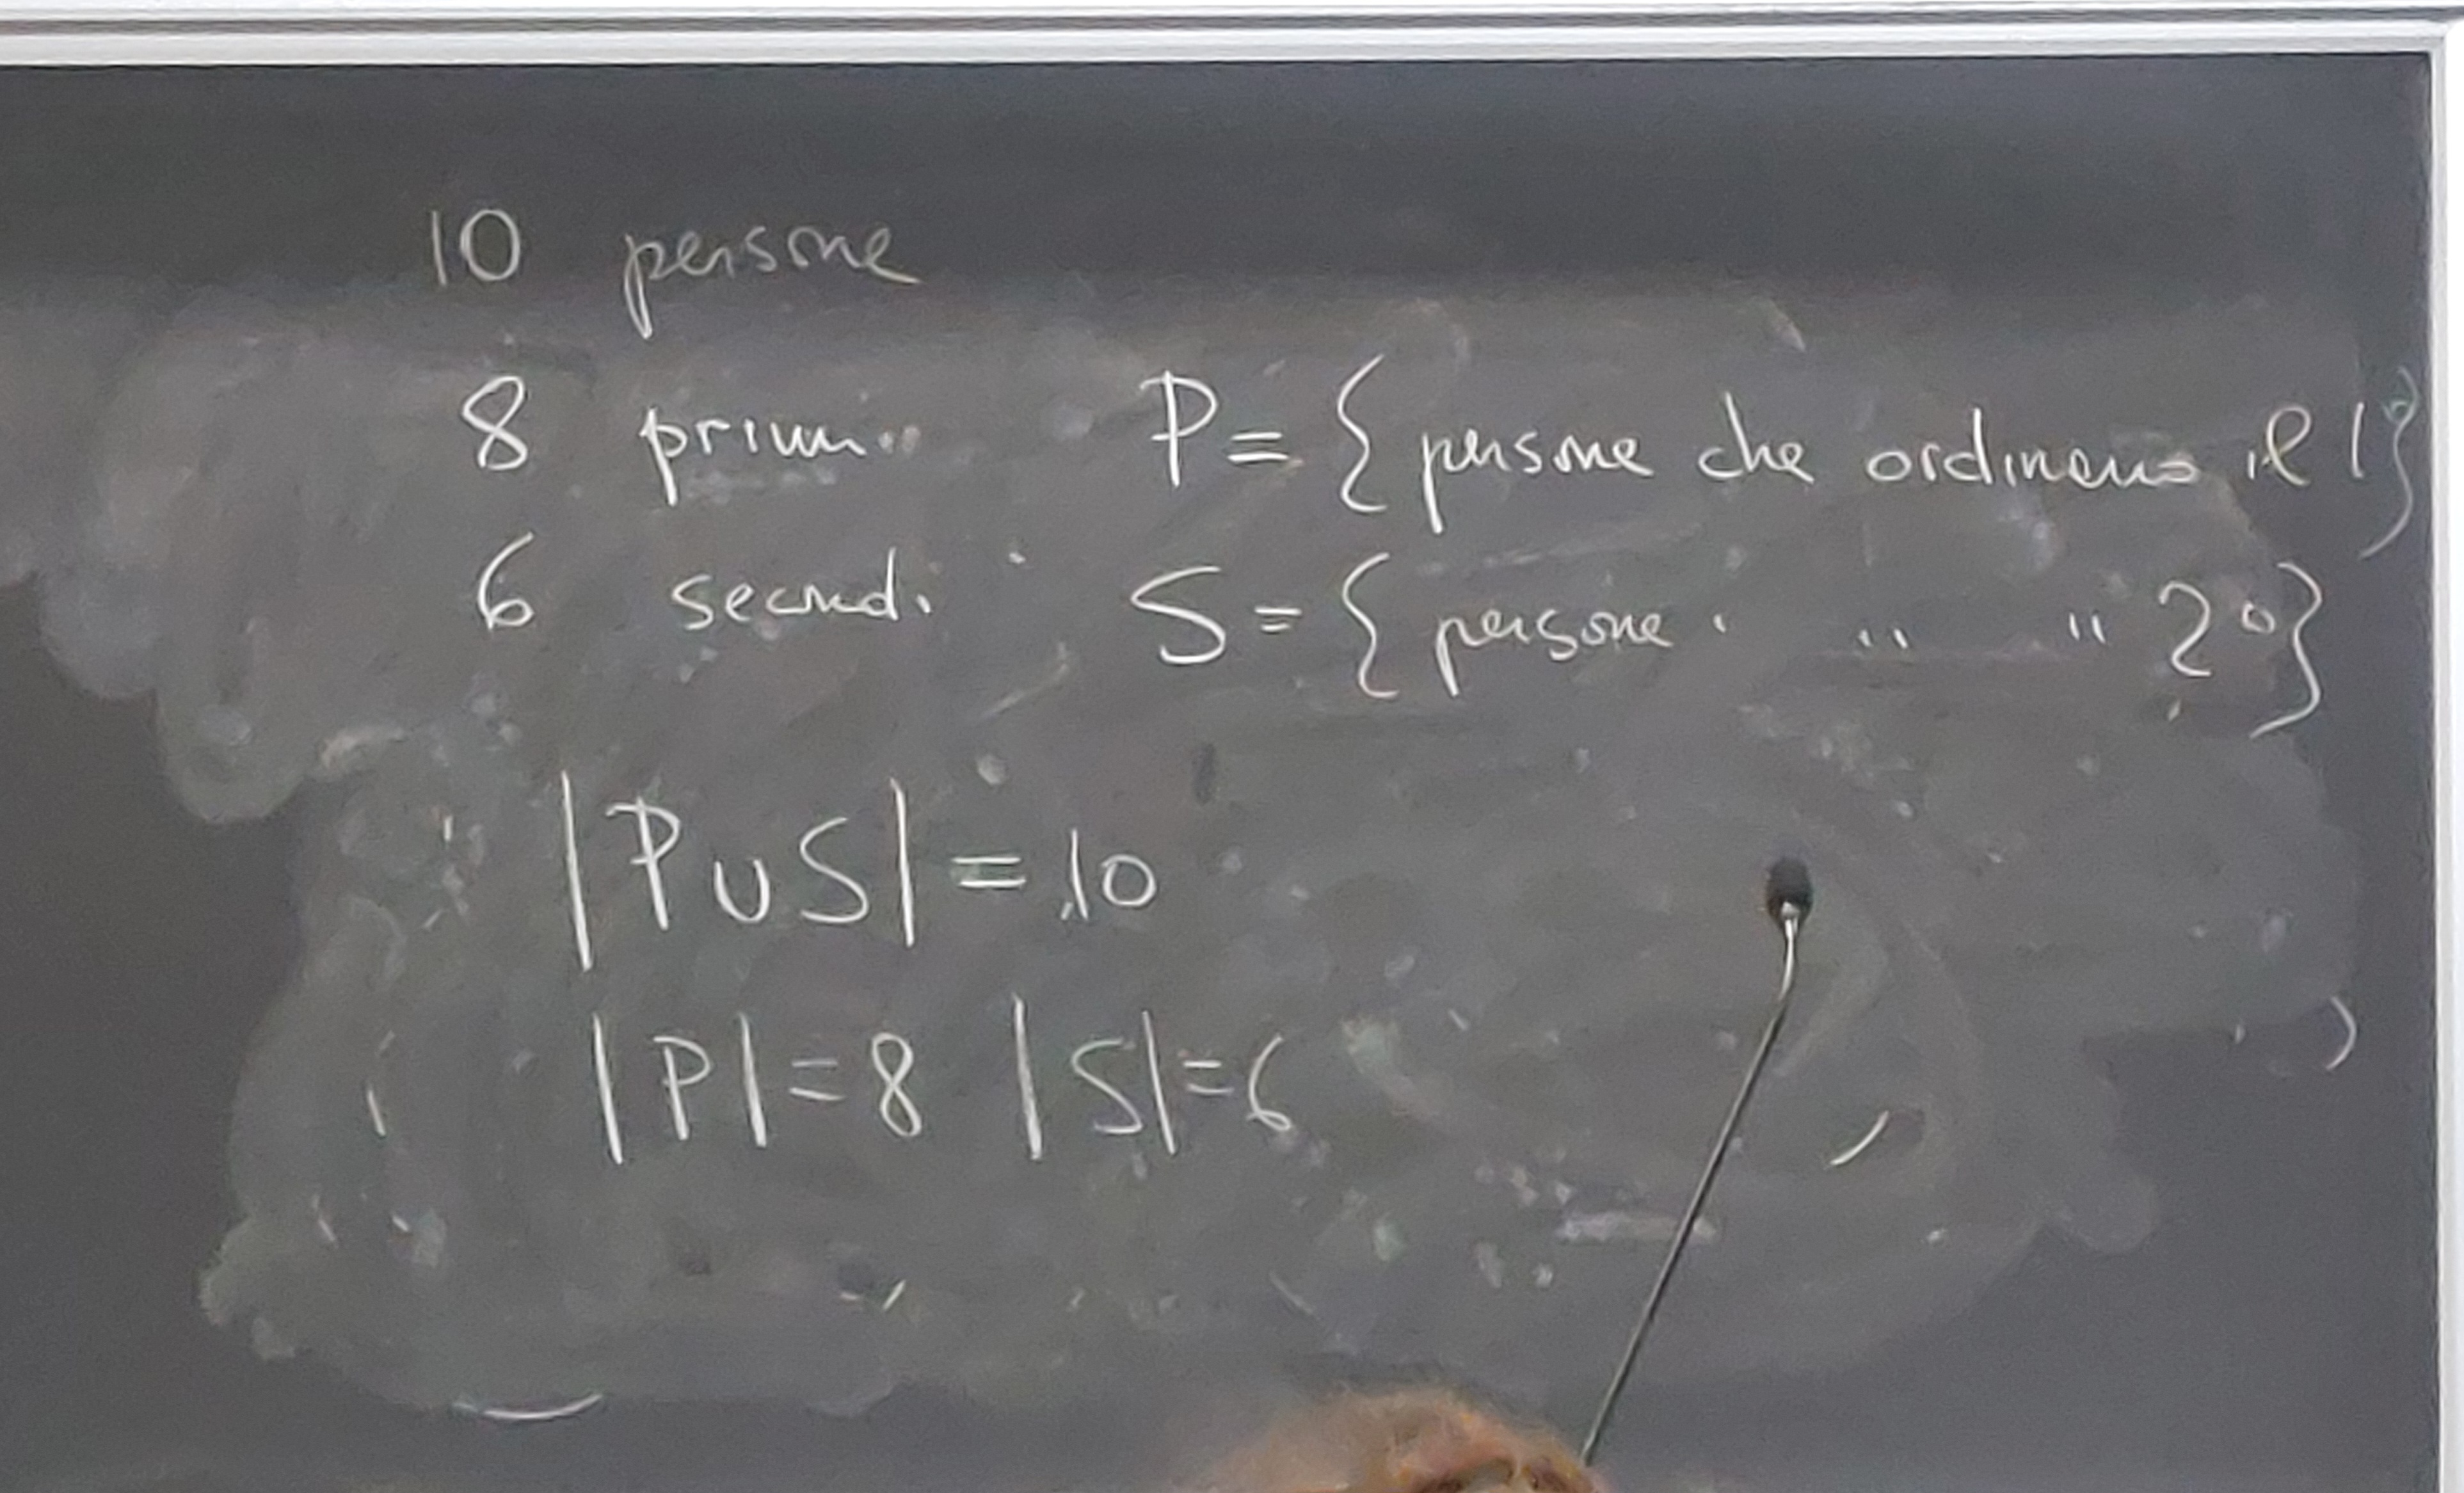 10 persone
8 primi P = { persone che ordinano il 1° }
6 secondi S = { persone " " " 2° }
|P ∪ S| = 10
|P| = 8 |S| = 6